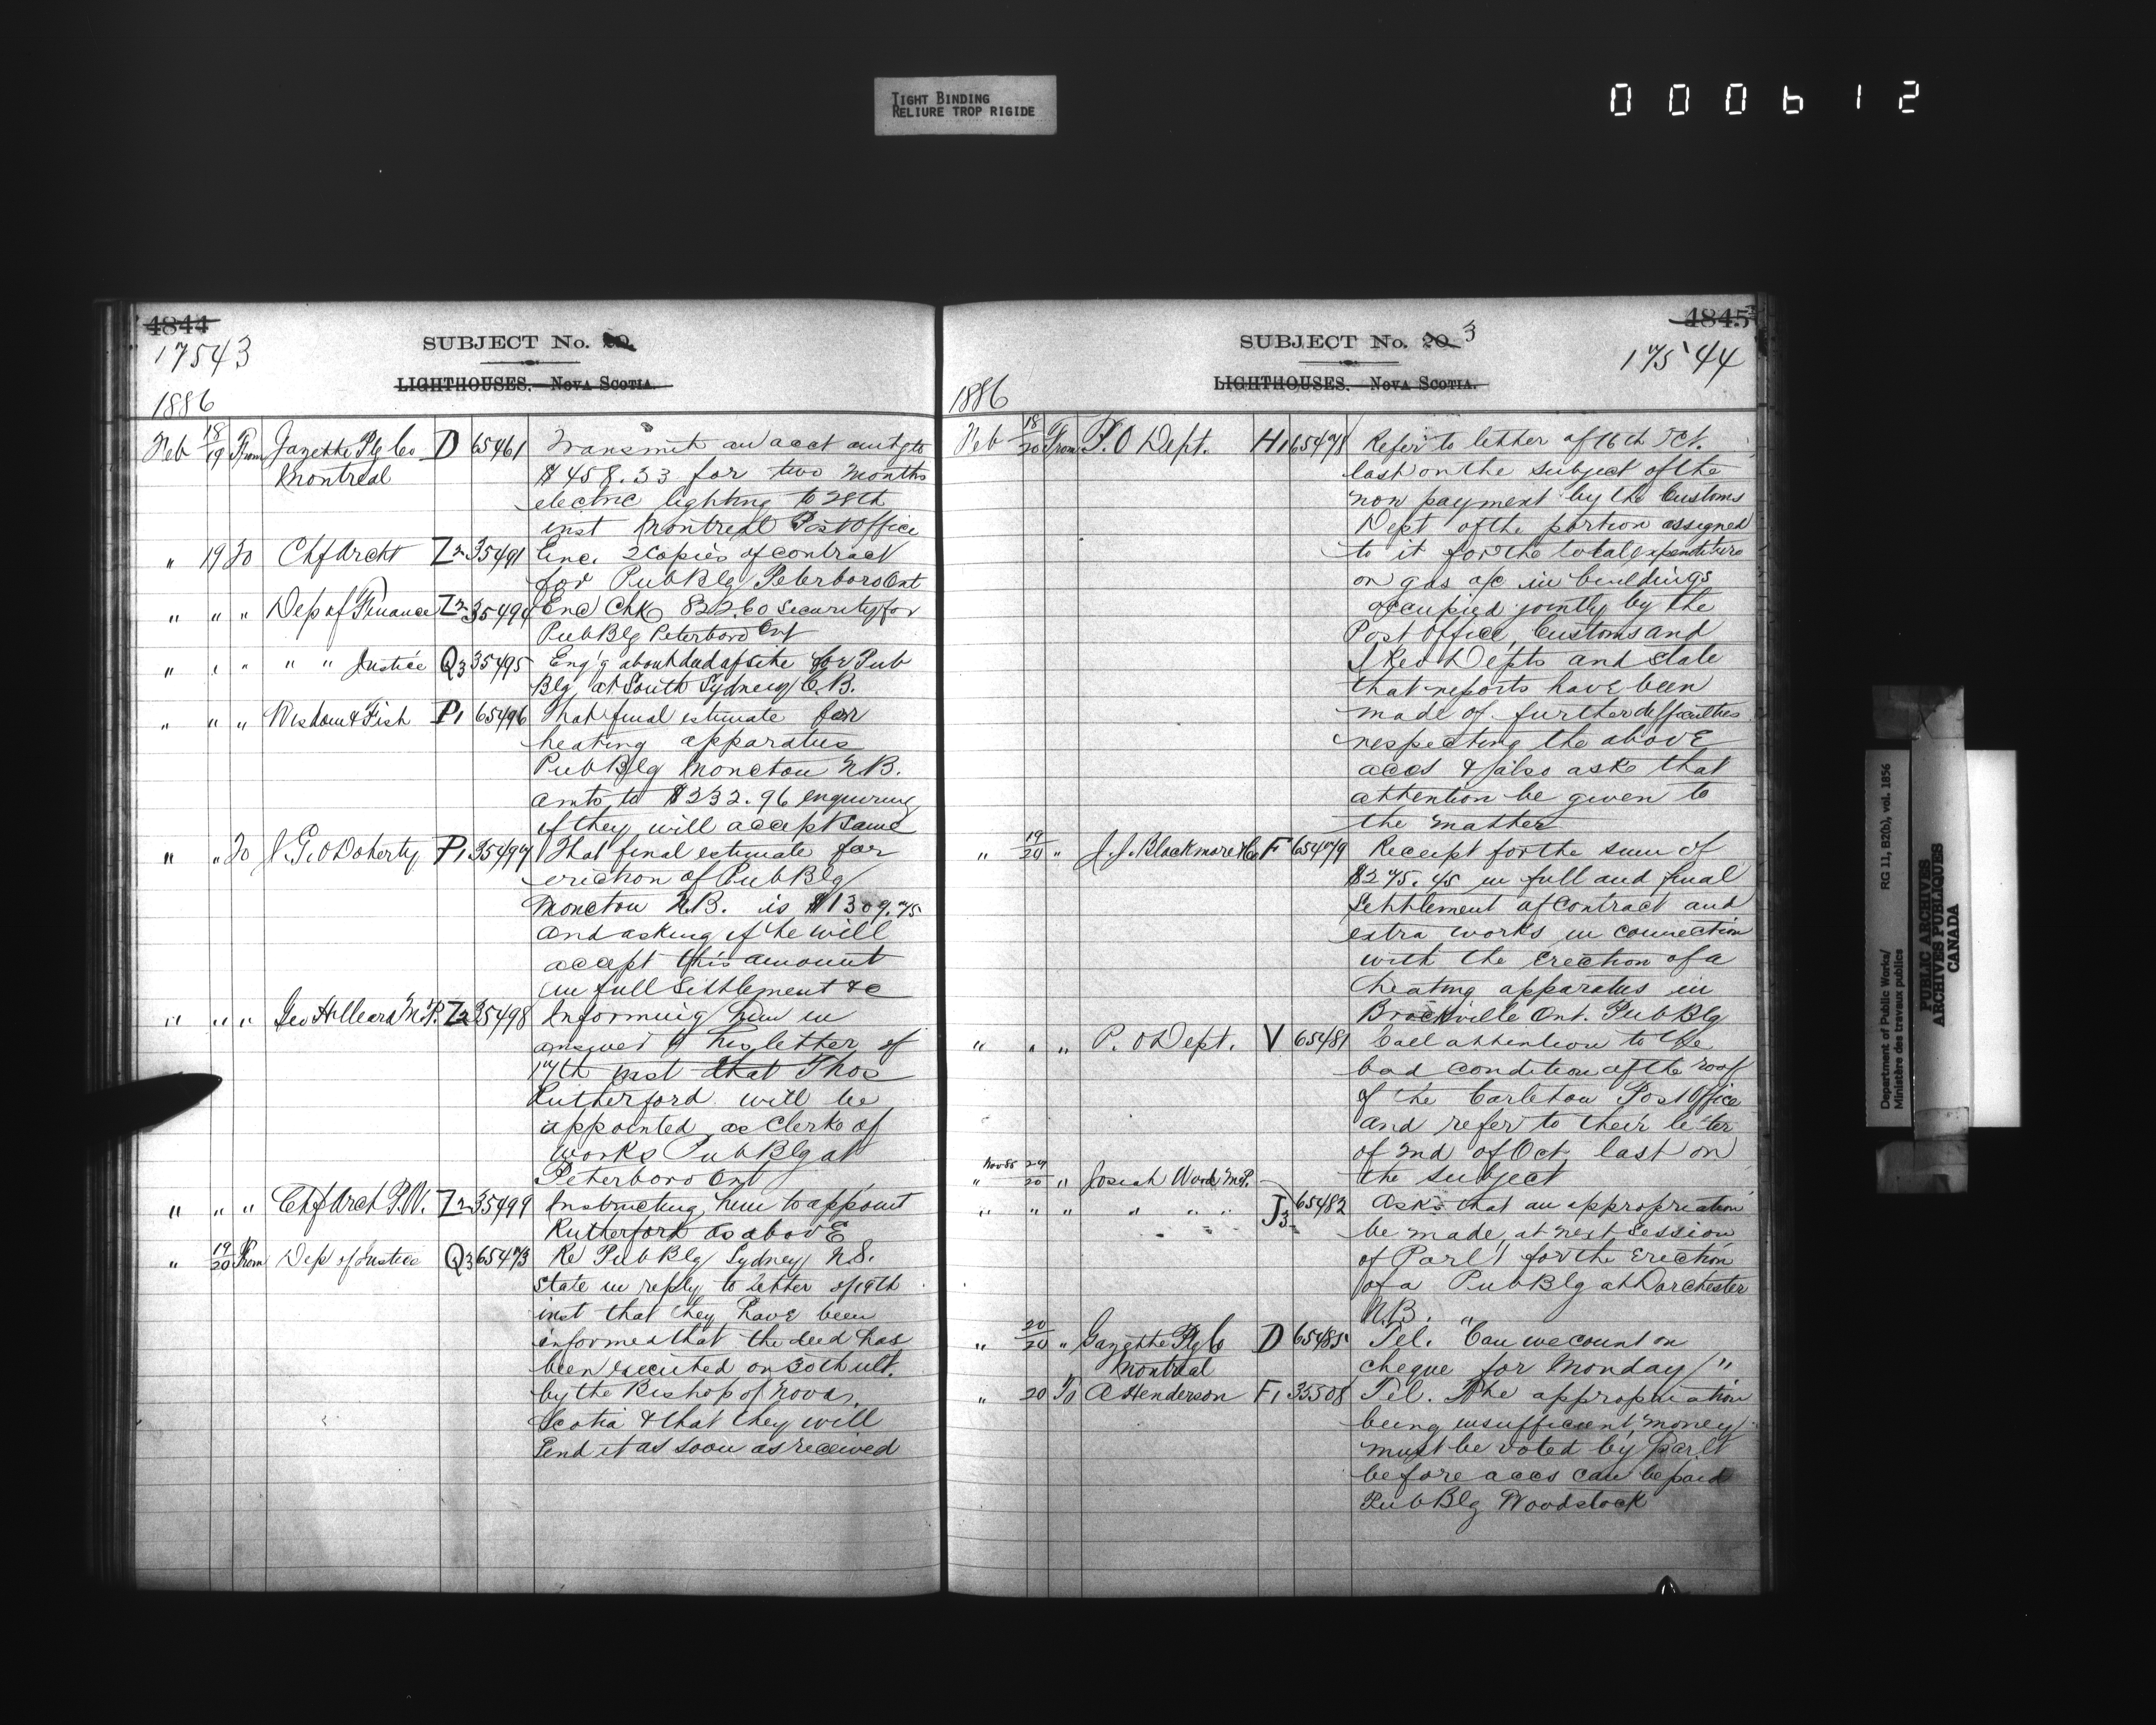 TIGHT BINDING
RELIURE TROP RIGIDE
000612
4844
17543
SUBJECT No. 20.
LIGHTHOUSES.—NOVA SCOTIA.
1886
Feb 18/19 From Gazette Ptg Co D 65461 Transmit an acct amtg to
Montreal $458.33 for two months
electric lighting to 28th
inst Montreal Post Office
" 19 To Chf Archt Z2 35491 Enc. 2 Copies of contract
for Pub Blg Peterboro Ont
" " " Dep of Finance Z2 35494 Enc Chk 8226.0 security for
Pub Blg Peterboro Ont
" " " " " Justice Q3 35495 Eng'g about deed of site for Pub
Blg at South Sydney C.B.
" " " Wisdom & Fish P1 65496 That final estimate for
heating apparatus
Pub Blg Moncton N.B.
amts to $232.96 enquiring
if they will accept same
" " 20 J. G. O Doherty P1 35497 That final estimate for
erection of Pub Blg
Moncton N.B. is $1309.75
and asking if he will
accept this amount
in full Settlement &c
" " " Geo Hilliard M.P. Z2 35498 Informing him in
answer to his letter of
17th inst that Thos
Rutherford will be
appointed as Clerk of
works Pub Blg at
Peterboro Ont
" " " Chf Arch P.W. Z2 35499 Instructing him to appoint
Rutherford as above
" 19/20 From Dep of Justice Q3 65473 Re Pub Blg Sydney N.S.
State in reply to letter of 19th
inst that they have been
informed that the deed has
been executed on 30th ult.
by the Bishop of Nova
Scotia & that they will
send it as soon as received
4845
SUBJECT No. 20. 3
17544
LIGHTHOUSES.—NOVA SCOTIA.
1886
Feb 18/20 From P.O Dept. H1 65478 Refer to letter of 16th Oct.
last on the subject of the
non payment by the Customs
Dept of the portion assigned
to it for the total expenditure
on gas a/c in buildings
occupied jointly by the
Post Office, Customs and
I Rev Depts and state
that reports have been
made of further difficulties
respecting the above
accs & also ask that
attention be given to
the matter
" 19/20 " J. J. Blackmore & Co F 65479 Receipt for the sum of
$275.45 in full and final
Settlement of contract and
extra works in connection
with the erection of a
heating apparatus in
Brockville Ont. Pub Blg
" " " P. O Dept. V 65481 Call attention to the
bad condition of the roof
of the Carleton Post Office
and refer to their letter
of 2nd of Oct last on
the subject
Nov 85 29
" 20 " Josiah Wood M.P.
" " " " " " J3 65482 Asks that an appropriation
be made, at next Session
of Parl't for the erection
of a Pub Blg at Dorchester
N.B.
" 20/20 " Gazette Ptg Co D 65485 Tel. "Can we count on
Montreal cheque for Monday"
" 20 To A Henderson F1 35508 Tel. The appropriation
being insufficient, money
must be voted by Parlt
before accs can be paid
Pub Blg Woodstock
Department of Public Works/
Ministère des travaux publics
RG 11, B2(b), vol. 1856
PUBLIC ARCHIVES
ARCHIVES PUBLIQUES
CANADA